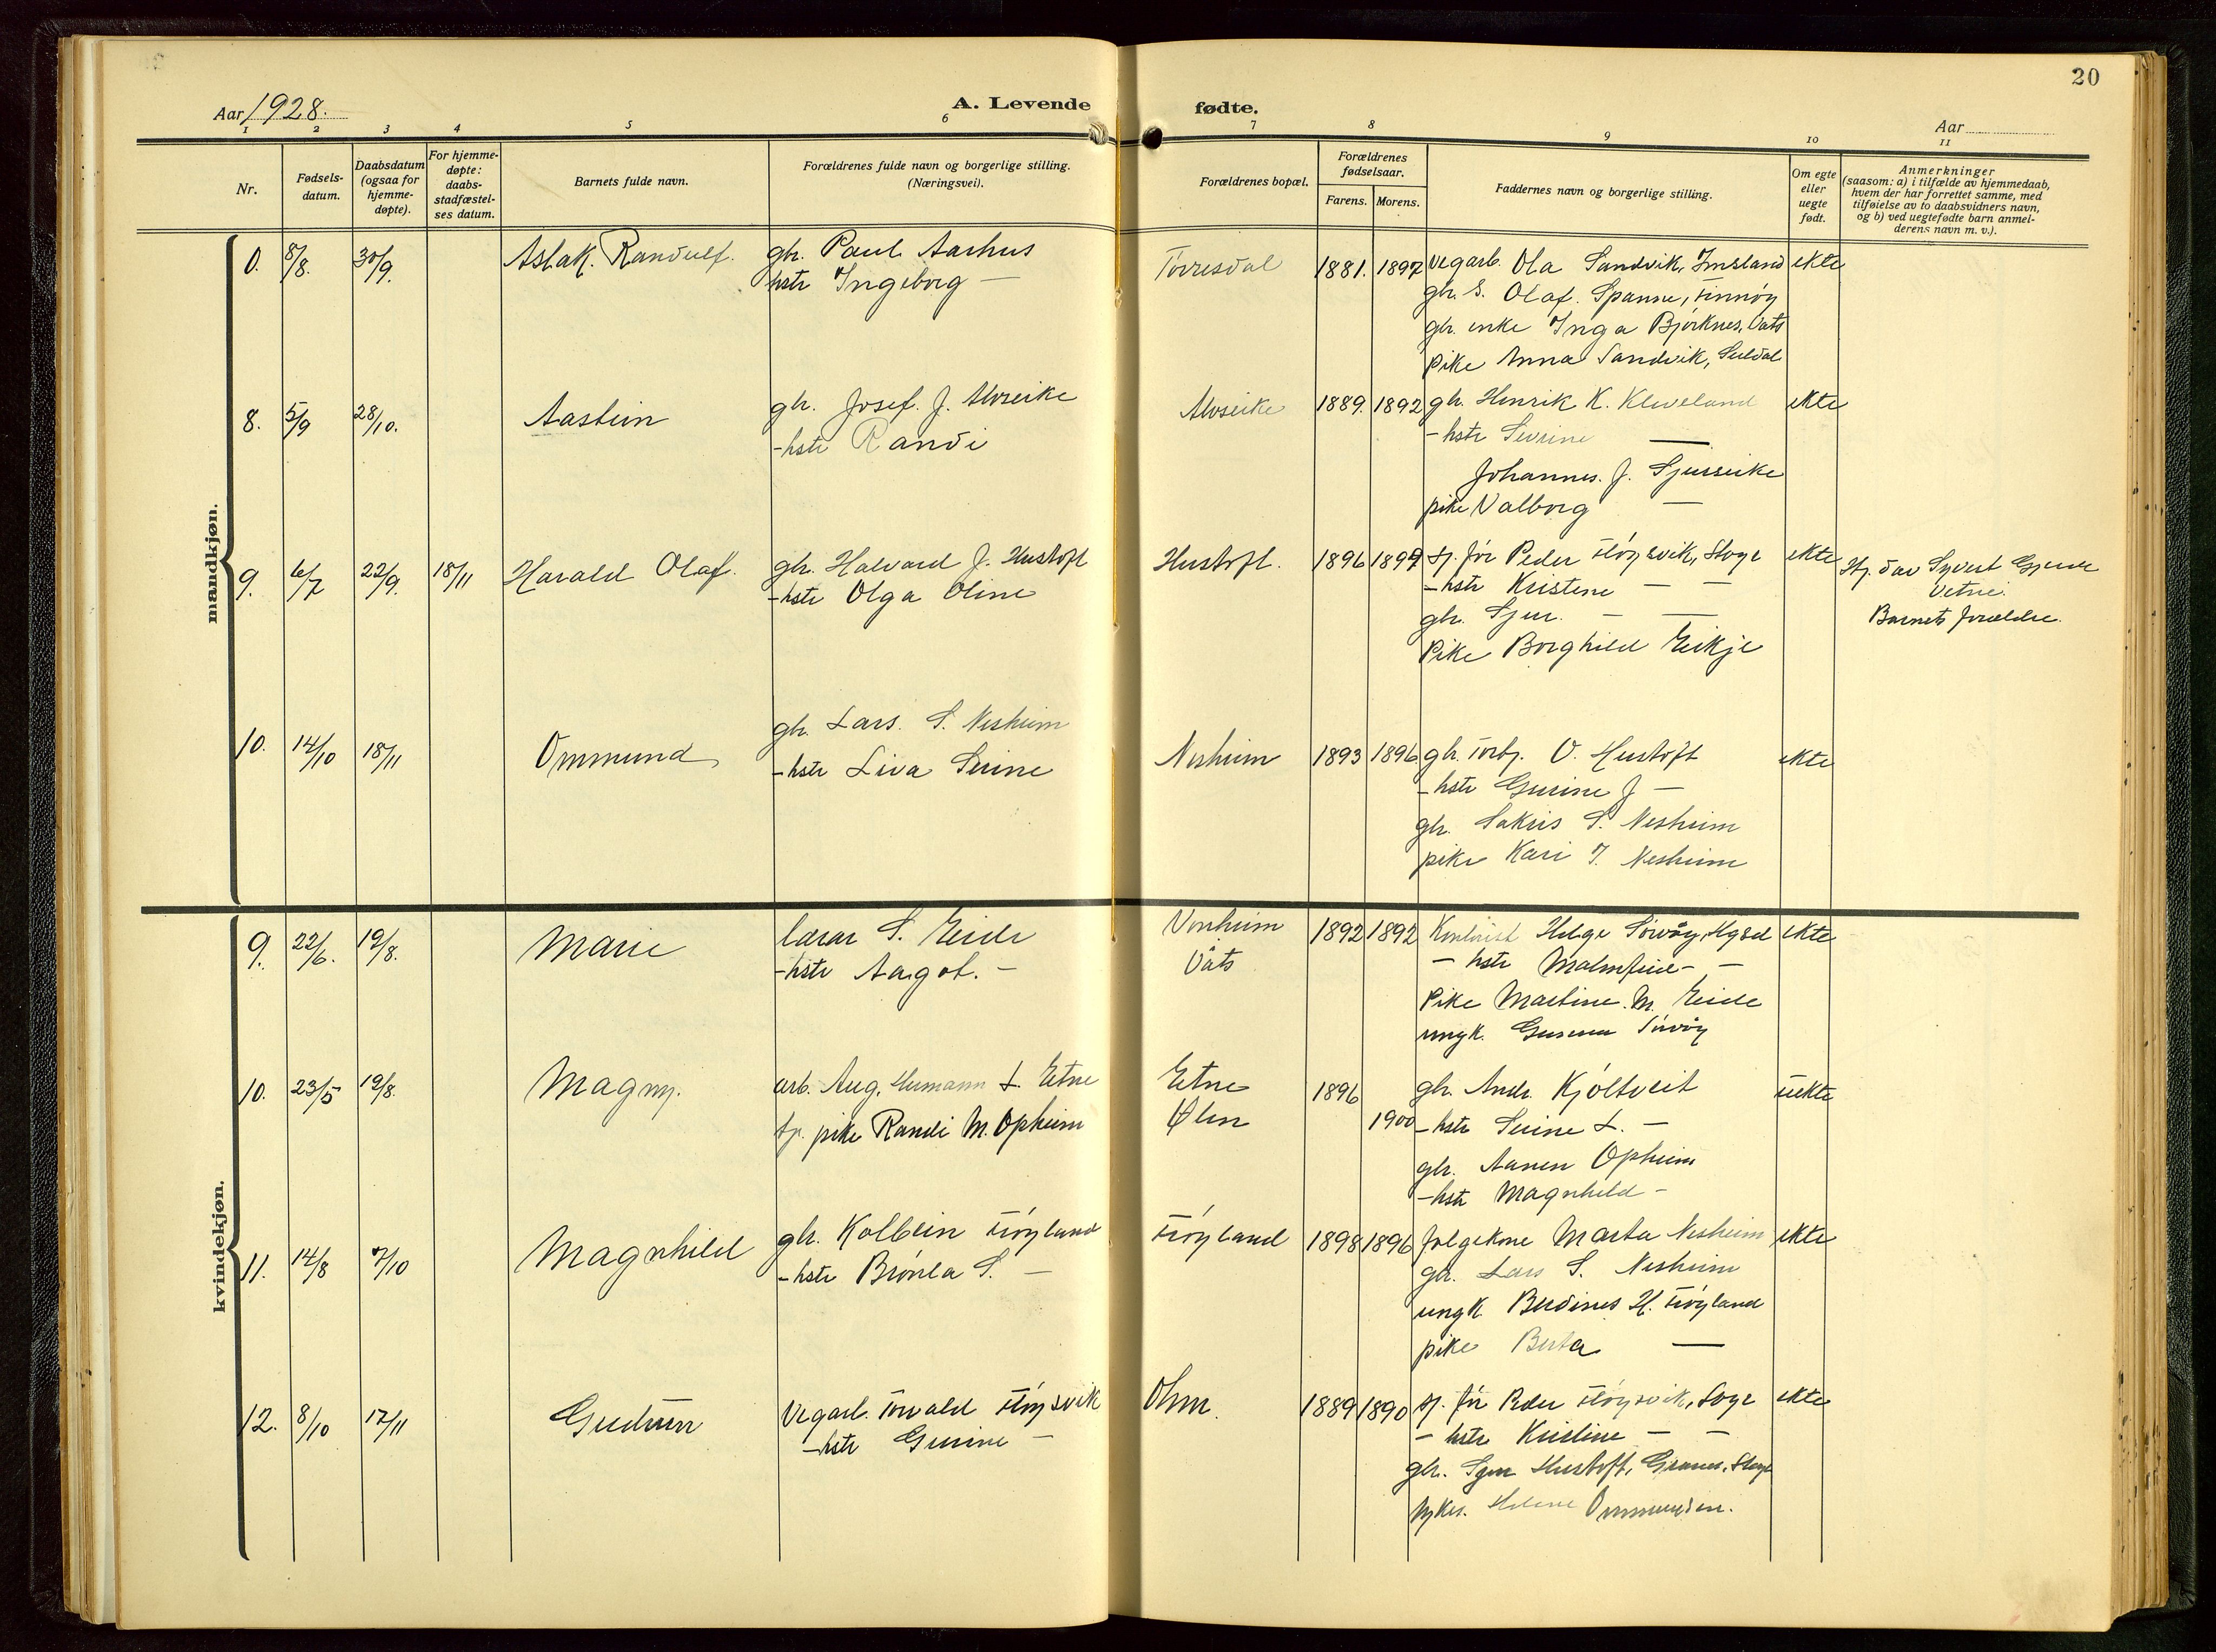 20
Aar 1928.
A. Levende fødte.
Aar
1 2 3 4 5 6 7 8 9 10 11
Nr.
Fødsels-
datum.
Daabsdatum
(ogsaa for
hjemme-
døpte).
For hjemme-
døpte:
daabs-
stadfæstel-
ses datum.
Barnets fulde navn.
Forældrenes fulde navn og borgerlige stilling.
(Næringsvei).
Forældrenes bopæl.
Forældrenes
fødselsaar.
Farens. Morens.
Faddernes navn og borgerlige stilling.
Om egte
eller
uegte
født.
Anmerkninger
(saasom: a) i tilfælde av hjemmedaab,
hvem der har forrettet samme, med
tilføielse av to daabsvidners navn,
og b) ved uegtefødte barn anmel-
derens navn m. v.).
mandkjøn.
0. 8/8. 30/9. Aslak. Randulf. gbr. Paul Aarhus Torresdal 1881. 1897 Vegarb. Ola Sandvik, Imsland ekte
hstr Ingeborg — gbr. S. Olaf. Spanne, Finnøy
gbr. enke Inga Bjørknes, Vats
Pike Anna Sandvik, Suldal
8. 5/9 28/10. Aastein gbr. Josef. J. Alvseike Alvseike 1889. 1892 gbr. Henrik K. Kleveland ekte
- hstr Randi - hstr Sevrine —
Johannes. J. Sjurseike
pike Valborg —
9. 6/7 22/9. 18/11 Harald Olaf. gbr. Halvard J. Hustoft Hustoft. 1896 1899 sj. før Peder Fløysvik, Stoge ekte
- hstr Olga Oline - hstr Kristine — —
gbr. Sjur. — —
Pike Borghild Eikje
Sivert Gjerde
Vetrie.
Barnets forældre.
10. 14/10 18/11 Ommund gbr. Lars. S. Nesheim Nesheim 1893 1896 gbr. Torbj. O. Hustoft ekte
- hstr Liva Serine - hstr Gurine J —
gbr. Sakris S. Nesheim
pike Kari T. Nesheim
kvindekjøn.
9. 22/6. 19/8. Marie lærar S. Eide Vonheim 1892 1892 Helge Sørvåg, ekte
- hstr Aagot. — Vats - hstr Malmfrid — —
Pike Martine. M. Eide
ungk. Gunnar Sørvåg
10. 23/5 19/8. Magny. arb. Aug. Humann L. Etne Etne 1896 gbr. Andr. Kjøltveit uekte
pike Randi M. Opheim Ølen 1900 - hstr Serine L. —
gbr. Aanen Opheim
- hstr Magnhild —
11. 14/8 7/10 Magnhild gbr. Kolbein Frøyland Frøyland 1898 1896 folgekone Marta Nesheim ekte
- hstr Brønla S. — gbr. Lars S. Nesheim
ungk. Berdines H. Frøyland
pike Berta —
12. 8/10 17/11 Gudrun Vegarb. Torvald Fløysvik Ølen. 1889 1890 sj. før Peder Fløysvik, Stoge ekte
- hstr Gurine — - hstr Kristine — —
gbr. Sjur Hustoft,
Helene Ommundsen.